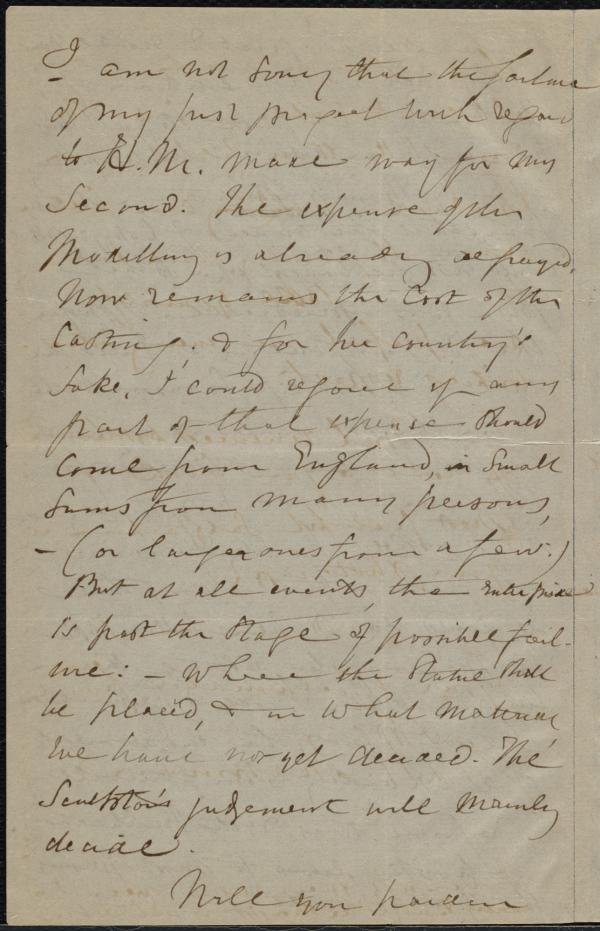 I am not sorry that the failure
of my first project with regard
to H. M. made way for my
Second. The expense of the
Modelling is already defrayed.
Now remains the Cost of the
Casting; & for her country's
sake, I could rejoice if any
part of that expense should
come from England, in small
sums from many persons,
– (or larger ones from a few.)
But at all events, the enterprise
is past the stage of possible fail-
ure: – Where the Statue shall
be placed, & in what material
we have not yet decided. The
Sculptor's judgement will mainly
decide.
Will you pardon